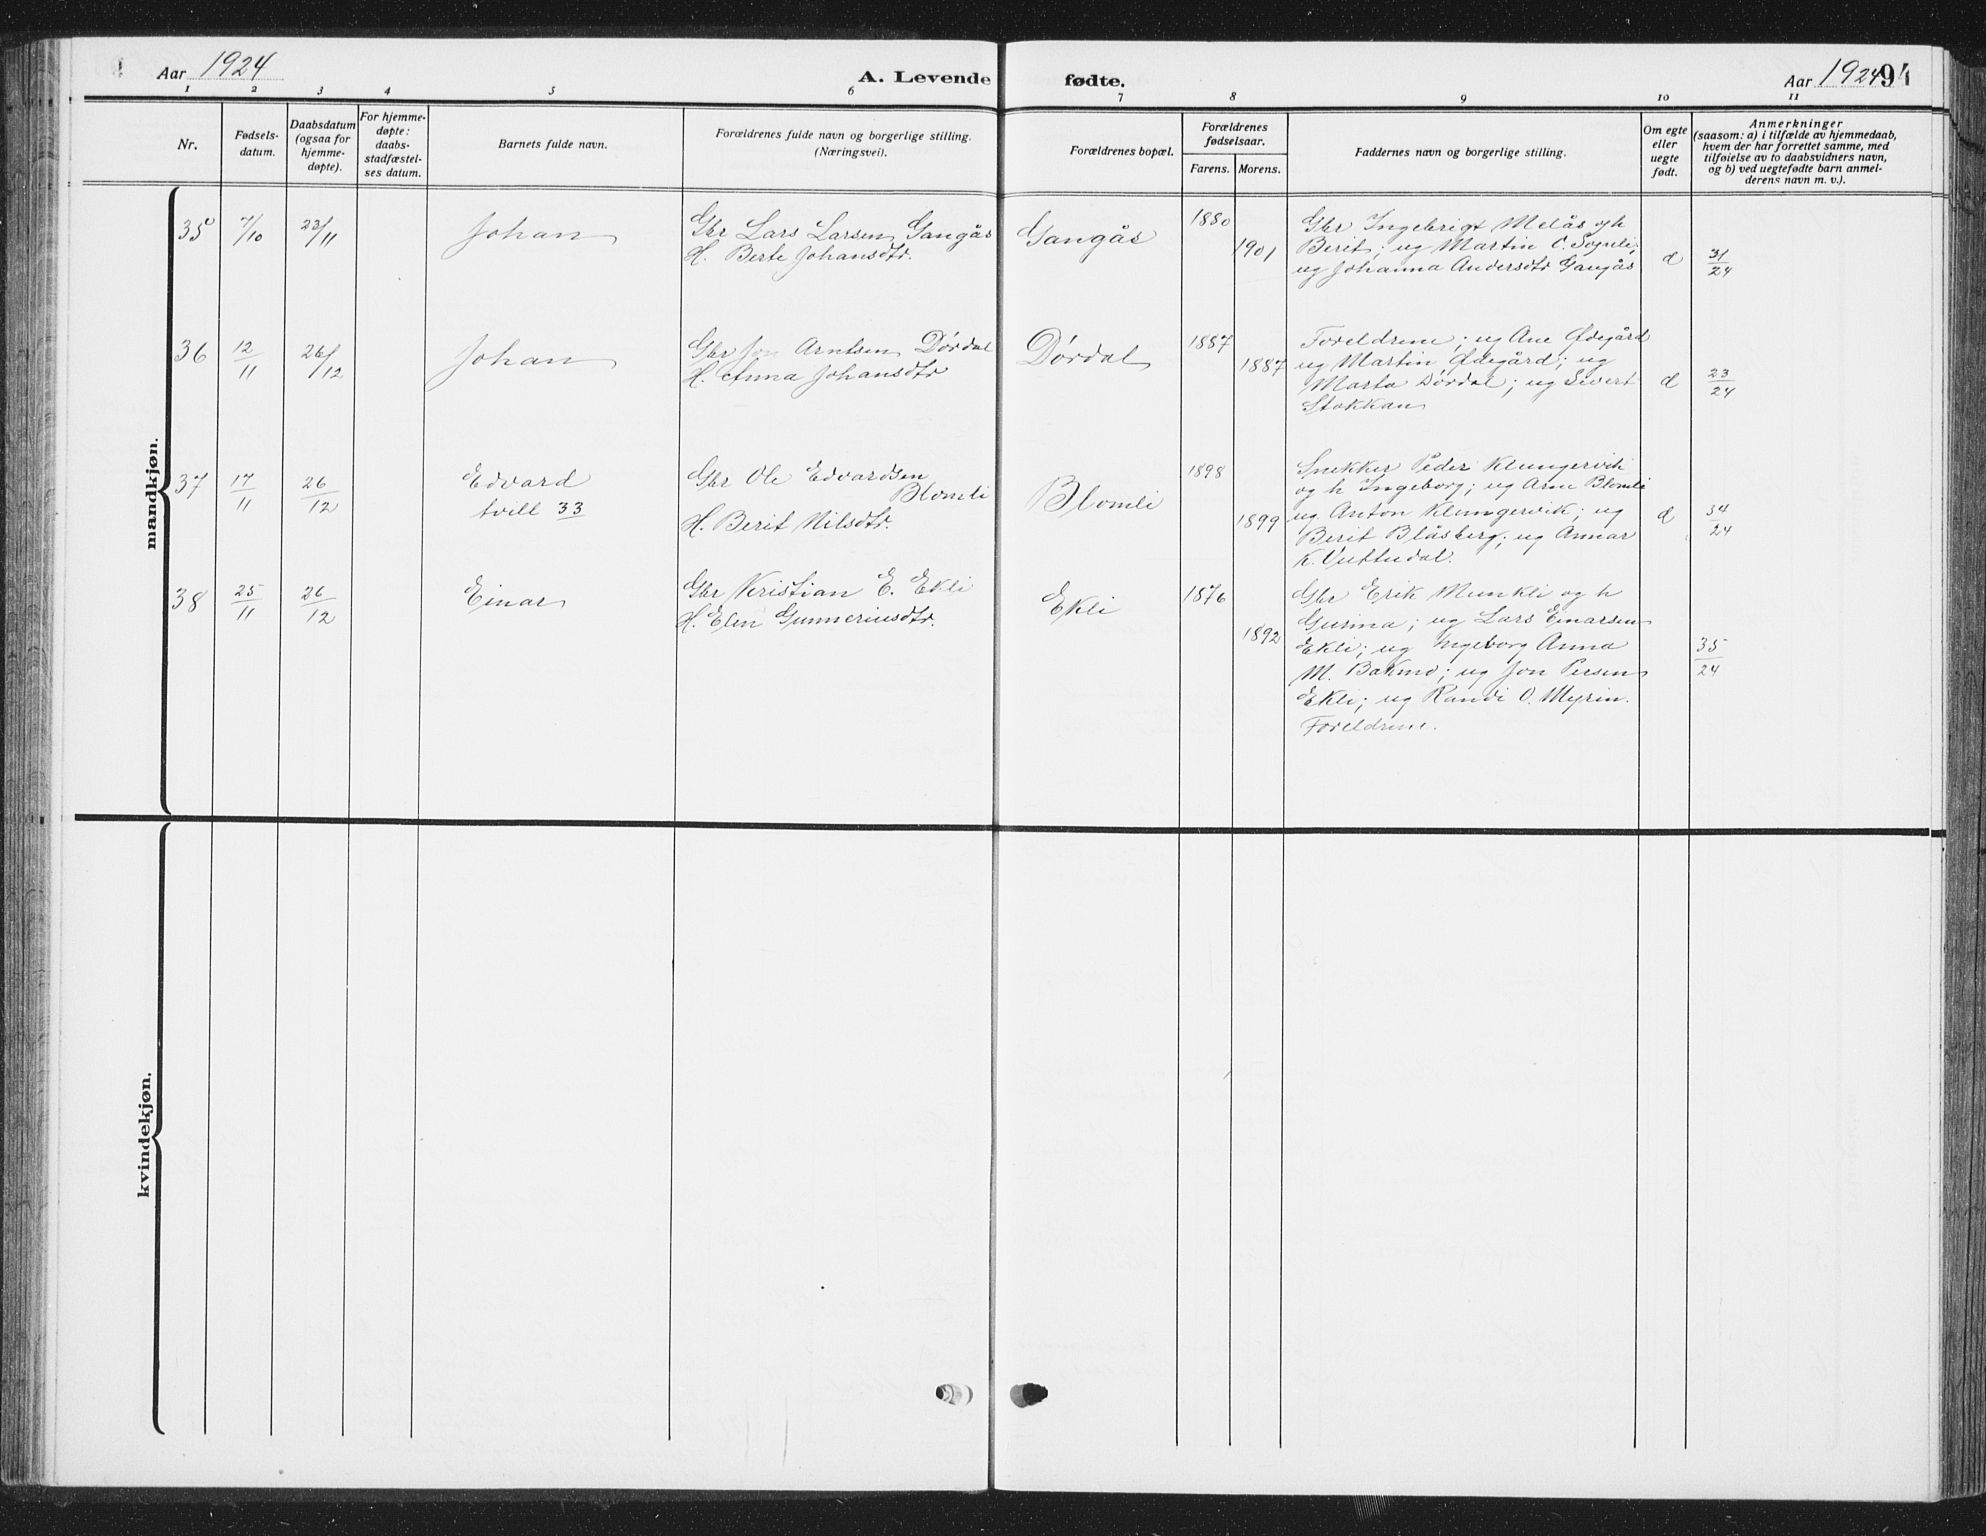 Aar 1924
A. Levende fødte.
Aar 1924 94
1 2 3 4 5 6 7 8 9 10 11
Nr.
Fødsels-
datum.
Daabsdatum
(ogsaa for
hjemme-
døpte).
For hjemme-
døpte:
daabs-
stadfæstel-
ses datum.
Barnets fulde navn.
Forældrenes fulde navn og borgerlige stilling.
(Næringsvei).
Forældrenes bopæl.
Forældrenes
fødselsaar.
Farens. Morens.
Faddernes navn og borgerlige stilling.
Om egte
eller
uegte
født.
Anmerkninger
(saasom: a) i tilfælde av hjemmedaab,
hvem der har forrettet samme, med
tilføielse av to daabsvidners navn,
og b) ved uegtefødte barn anmel-
derens navn m. v.).
mandkjøn.
35 7/10 23/11 Johan
Gbr Lars Larsen Gangås
H. Berte Johansdtr.
Gangås
1880
1901
Gbr Ingebrigt Melås og h
Berit; ug Martin O. Sognli;
ug Johanna Andersdtr Gangås
d
31/24
36 12/11 26/12 Johan
Gbr Jon Arntsen Dørdal
H. Anna Johansdtr
Dørdal
1887
1887
Foreldrene; ug Ane Ødegård
ug Martin Ødegård; ug
Marta Dørdal; ug Sivert
Stokkan
d
23/24
37 17/11 26/12 Edvard
tvill 33
Gbr Ole Edvardsen
Blomli
H. Berit Nilsdtr.
Blomli
1898
1899
Snekker Peder Klungervik
og h Ingeborg; ug Arne Blomli
ug Anton Klungervik; ug
Berit Blåsberg; ug Annar
K.
d
34/24
38 25/11 26/12 Einar
Gbr Kristian E. Ekli
H. Elen Gunneriusdtr.
Ekli
1876
1892
Gbr Erik Munkli og h
Gurina; ug Lars Einarsen
Ekli; ug Ingeborg Anna
M. Bakmo; ug Jon Persen
Ekli; ug Randi O. Myrin.
Foreldrene.
35/24
kvindekjøn.